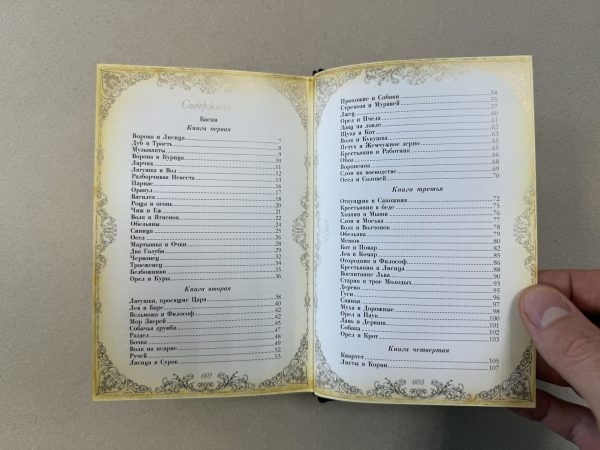 Содержание
Басни
Книга первая
Ворона и Лисица 7
Дуб и Трость 8
Музыканты 9
Ворона и Курица 10
Ларчик 11
Лягушка и Вол 12
Разборчивая Невеста 13
Парнас 16
Оракул 17
Василек 18
Роща и огонь 20
Чиж и Еж 21
Волк и Ягненок 22
Обезьяны 24
Синица 25
Осел 26
Мартышка и Очки 28
Два Голубя 29
Червонец 32
Троеженец 34
Безбожники 35
Орел и Куры 36
Книга вторая
Лягушки, просящие Царя 38
Лев и Барс 40
Вельможа и Философ 42
Мор Зверей 42
Собачья дружба 45
Раздел 47
Бочка 48
Волк на псарне 49
Ручей 52
Лисица и Сурок 53
602
Прохожие и Собаки 54
Стрекоза и Муравей 55
Лжец 57
Орел и Пчела 60
Заяц на ловле 61
Щука и Кот 62
Волк и Кукушка 63
Петух и Жемчужное зерно 65
Крестьянин и Работник 65
Обоз 66
Вороненок 68
Слон на воеводстве 69
Осел и Соловей 70
Книга третья
Откупщик и Сапожник 72
Крестьянин в беде 75
Хозяин и Мыши 76
Слон и Моська 77
Волк и Волчонок 78
Обезьяна 79
Мешок 80
Кот и Повар 82
Лев и Комар 84
Огородник и Философ 86
Крестьянин и Лисица 88
Воспитание Льва 90
Старик и трое Молодых 93
Дерево 95
Гуси 96
Свинья 97
Муха и Дорожные 98
Орел и Паук 100
Лань и Дервиш 101
Собака 102
Орел и Крот 103
Книга четвертая
Квартет 105
Листы и Корни 107
603